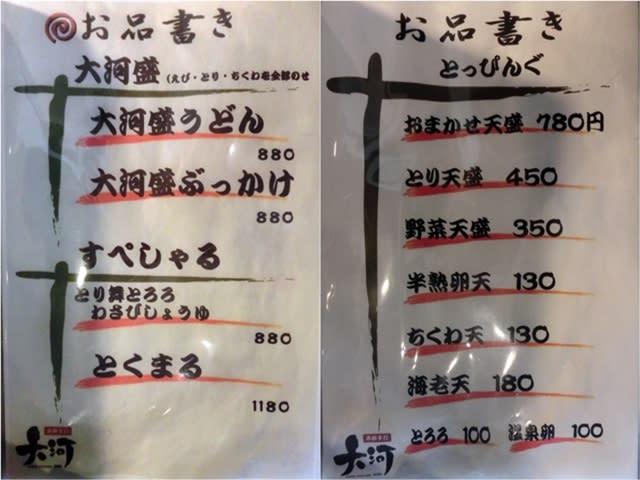 お品書き
大河盛 (えび・とり・ちくわを全部のせ
大河盛うどん
880
大河盛ぶっかけ
880
すぺしゃる
とり舞とろろ
わさびしょうゆ
880
とくまる
1180
大河
お品書き
とっぴんぐ
おまかせ天盛 780円
とり天盛 450
野菜天盛 350
半熟卵天 130
ちくわ天 130
海老天 180
とろろ 100 温泉卵 100
大河